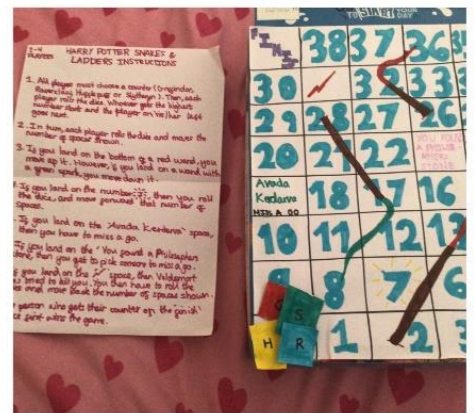 2-4
PLAYERS
HARRY POTTER SNAKES &
LADDERS INSTRUCTIONS
1. All player must choose a counter (Gryffindor,
Ravenclaw, Hufflepuff or Slytherin). Then, each
player rolls the dice. Whoever gets the highest
number starts and the player on his/her left
goes next.
2. In turn, each player rolls the dice and moves the
number of spaces shown.
3. If you land on the bottom of a red wand, you
move up it. However, if you land on a wand with
a green spark, you move down it.
If you land on the number 7, then you roll
the dice, and move forward that number of
spaces.
If you land on the 'Avada Kedavra' space,
then you have to miss a go.
If you land on the 'You found a Philosophers
then you get to pick someone to miss a go.
you land on the space, then Voldemort
tried to kill you. You then have to roll the
and move back the number of spaces shown.
person who gets their counter on the 'finish'
first wins the game.
TO YOUR
DAY
FINIS
38 37 36
30 32 33
29 28 27 26
20 21 22
YOU FOUND
A PHILOSO
PHERS
STONE
Avada
Kedavra
MISS A GO
18 17 16
10 11 12 13
9 8 7 6
G S
H R
1 2